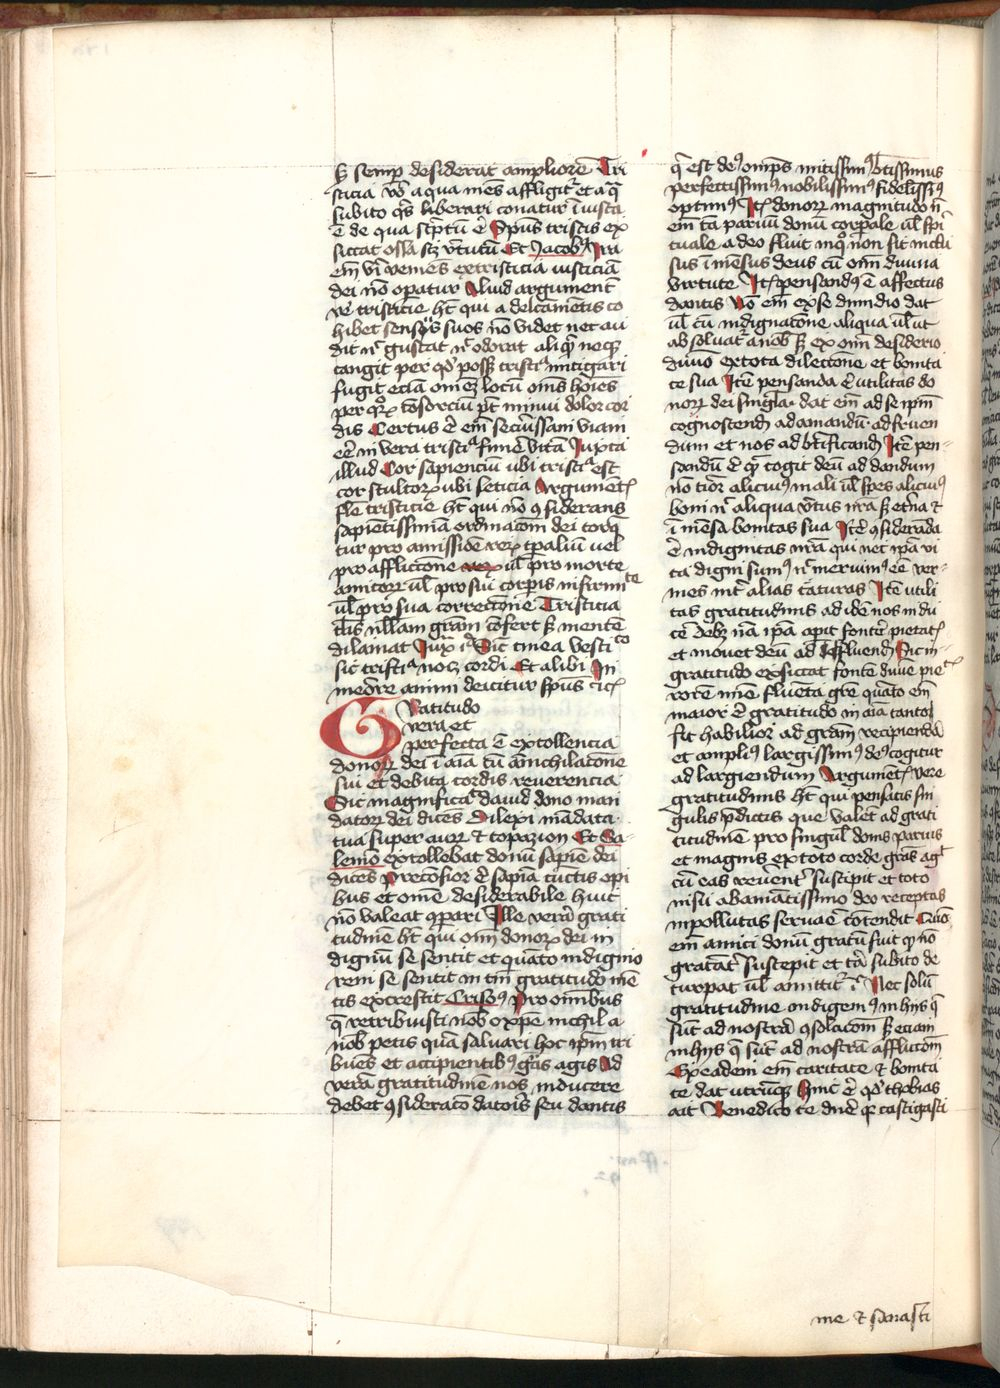 semper desiderat ampliorem Tri
sticia vero a qua mens affligitur et a qua
subito querit liberari conatur iniusta
e de qua scptum e Spiritus tristis ex
siccat ossa scz virtutum Et Jacobus Ira
em viri vemens ex tristicia iusticiam
dei no operatur Aliud argument
ve tristicie ht qui a delcamentis co
hibet sensus suos no videt nec au
dit nec gustat nec odorat aliquid necque
tangit per quod posset tristicia mitigari
fugit eciam omnem locum omnes homines
per quorum consorcium pt minui dolor cor
dis Certus e em securissam viam
ee in vera tristicia finire vitam Juxta
illud Cor sapiencium ubi tristicia est
cor stultorum ubi leticia Argumentum
false tristicie ht qui no considerans
sapientissimam ordinacionem dei torque
tur pro amissione rerum temporalium vel
pro afflictione vel pro morte
amicorum vel pro sui corporis infirmitate
vel pro sua correctione Tristicia
talis nullam graciam confert sed mentem
dilamat Juxta illud Sicut tinea vestimento
sic tristicia nocet cordi Et alibi In
merore animi deicitur spiritus etc
Gratitudo
vera et
perfecta e extollencia
donorum dei in anima cum annichilatione
sui et debita cordis reverencia
Sic magnificat david dono man
datorum dei dicens Dilexi mandata
tua super aurum et topazion Et Sa
lemon extollebat donum sapiencie dei
dicens Preciosior e sapiencia cunctis opi
bus et omne desiderabile huic
no valeat comparari Ille veram grati
tudinem ht qui omni donorum dei in
dignum se sentit et quanto indignio
rem se sentit in tantum gratitudo men
tis excrescit Crisostomus Pro omnibus
que retribuisti nobis o christe nichil a
nobis petis quam salvari hoc ipsum tri
buens et accipientibus gracias agis Ad
veram gratitudinem nos inducere
debet consideratio datoris seu dantis
qui est deus omnipotens mitissimus altissimus
perfectissimus nobilissimus fidelissimus
optimus Item donorum magnitudo non
em tam parvum donum corporale vel spiri
tuale a deo fluit in quo non sit inclu
sus immensus deus cum omni divina
virtute Item pensandus e affectus
dantis Non em ex se dimidio dat
vel cum indignacione aliqua vel ut
absolvatur a nobis sed ex omni desiderio
divino ex tota dilectione et bonita
te sua Item pensanda e utilitas do
norum dei singula dat em ad se ipsum
cognoscendum ad amandum ad fruen
dum et nos ad beatificandum Item pen
sandum e quid cogit deum ad dandum
non timor alicuius mali vel spes alicuius
boni nec aliqua virtus nostra sed eterna et
immensa bonitas sua Item consideranda
e indignitas nostra qui nec ipsa vi
ta digni sumus nec meruimus esse ver
mes inter alias creaturas Item utili
tas gratitudinis ad idem nos indu
cere debet nam ipsa aperit fontem pietatis
et movet deum ad effluendum Sicut in
gratitudo exsiccat fontem divine pietatis
rorem misericordie fluenta gracie quanto em
maior e gratitudo in anima tanto
fit habilior ad graciam recipiendam
et amplius largissimus deus cogitur
ad largiendum Argumentum vere
gratitudinis ht qui pensatis sin
gulis predictis que valent ad grati
tudinem pro singulis donis parvis
et magnis ex toto corde gracias agit
cum eas reverenter suscipit et toto
nisu ab amantissimo deo receptas
impollutas servare contendit Cuius
em amici donum gratum fuit qui non
gratanter suscepit et tam subito de
turpat vel amittit Nec solum
gratitudine indigemus in hiis que
sunt ad nostram consolacionem sed eciam
in hiis que sunt ad nostram afflictionem
Ex eadem em caritate et bonita
te dat utrumque Hinc e quod thobias
ait Benedico te domine quia castigasti
me et sanasti